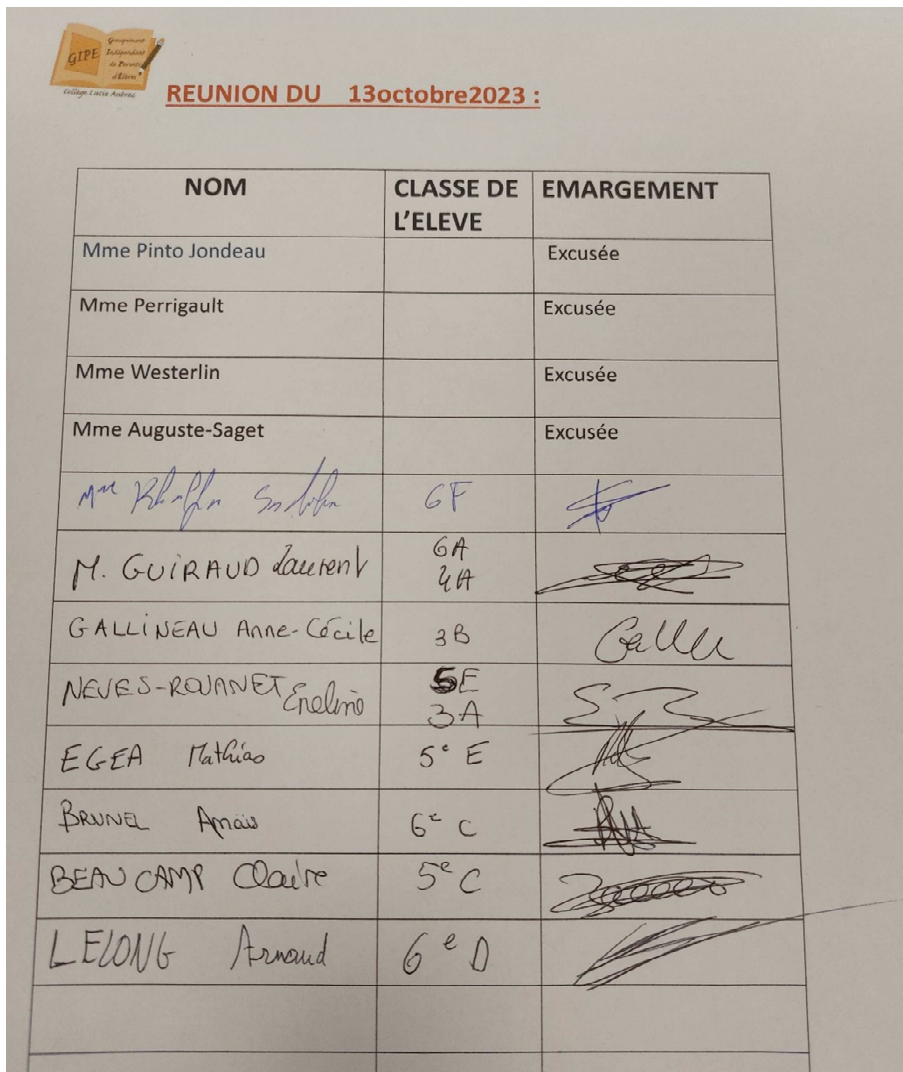 GIPE
Groupement
Indépendant
de Parents
d'Elèves
Collège Lucie Aubrac
REUNION DU 13octobre2023 :
NOM CLASSE DE L'ELEVE EMARGEMENT
Mme Pinto Jondeau Excusée
Mme Perrigault Excusée
Mme Westerlin Excusée
Mme Auguste-Saget Excusée
Mme 6F
M. GUIRAUD Laurent 6A 4A
GALLINEAU Anne-Cécile 3B
NEVES-ROUANET 5E 3A
EGEA Mathias 5e E
BRUNEL Anaïs 6e C
BEAUCAMP Claire 5e C
LELONG Arnaud 6e D